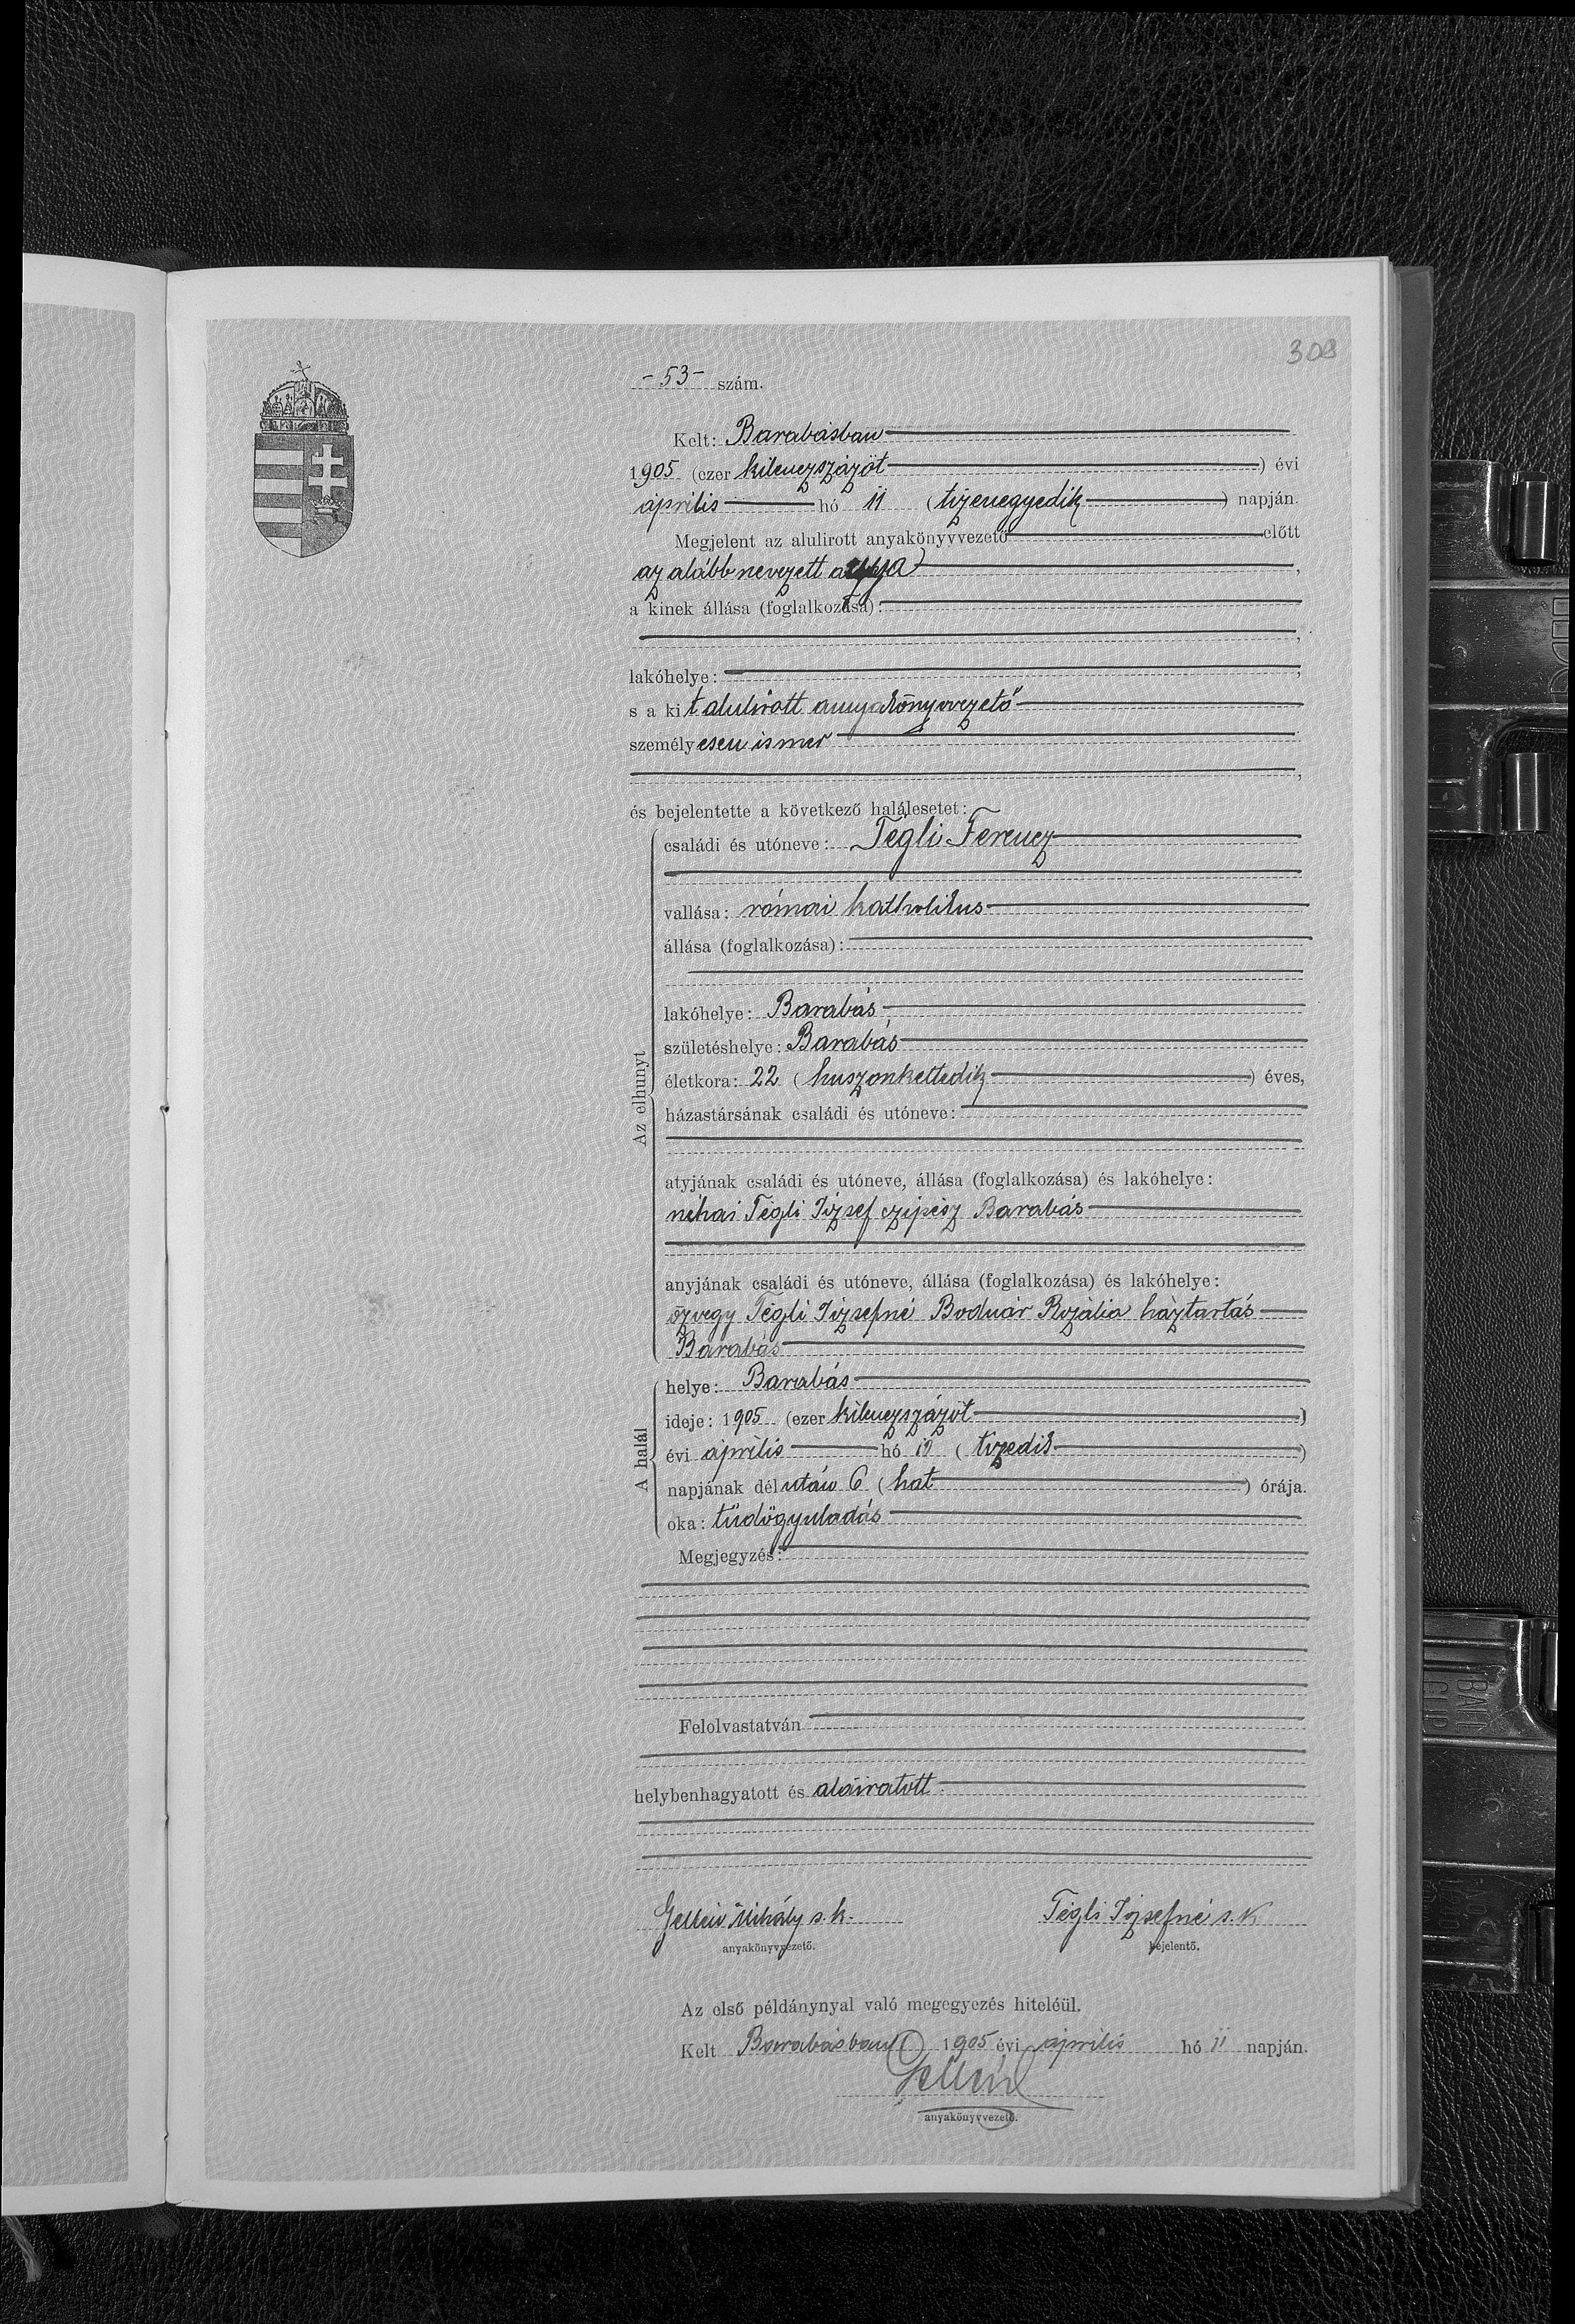 308
- 53 - szám.
Kelt: Barabásban
1905 (ezer kilenczszázöt) évi
április hó 11 (tizenegyedik) napján.
Megjelent az alulirott anyakönyvvezető előtt
az alább nevezett anyja,
a kinek állása (foglalkozása):
,
lakóhelye: ,
s a kit alulirott anyakönyvvezető
személyesen ismer
,
és bejelentette a következő halálesetet:
Az elhunyt
családi és utóneve: Tégli Ferencz
vallása: római katholikus
állása (foglalkozása):
lakóhelye: Barabás
születéshelye: Barabás
életkora: 22 (huszonkettedik) éves,
házastársának családi és utóneve:
atyjának családi és utóneve, állása (foglalkozása) és lakóhelye:
néhai Tégli József czipész Barabás
anyjának családi és utóneve, állása (foglalkozása) és lakóhelye:
özvegy Tégli Józsefné Bodnár Rozália háztartás
Barabás
A halál
helye: Barabás
ideje: 1905 (ezer kilenczszázöt)
évi április hó 10 (tizedik)
napjának délután 6 (hat) órája.
oka: tüdőgyuladás
Megjegyzés:
Felolvastatván
helybenhagyatott és aláiratott.
Gellén Mihály s. k. Tégli Józsefné s. k
anyakönyvvezető. bejelentő.
Az első példánynyal való megegyezés hiteléül.
Kelt Barabásban 1905 évi április hó 11 napján.
Gellén
anyakönyvvezető.